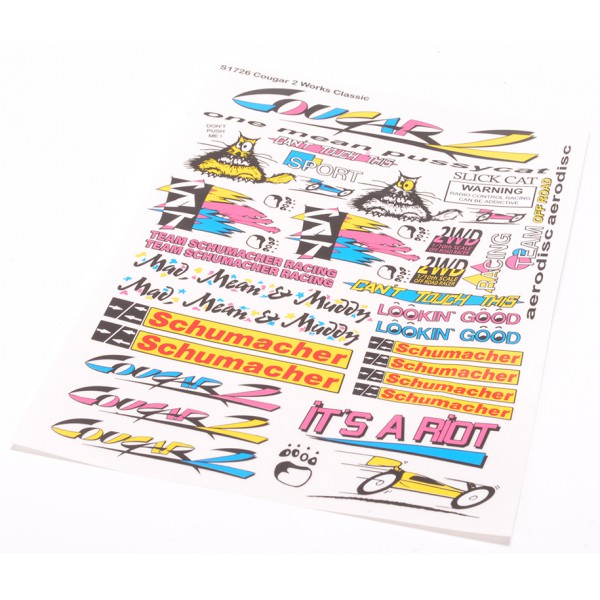 S1726 Cougar 2 Works Classic
COUGAR 2
one mean pussycat
DON'T
PUSH
ME!
CAN'T TOUCH THIS
SPORT
SLICK CAT
WARNING
RADIO CONTROL RACING
CAN BE ADDICTIVE
CAT
CAT
2WD
1/10th SCALE
OFF ROAD RACER
2WD
1/10th SCALE
OFF ROAD RACER
RACING
TEAM OFF ROAD
aerodisc aerodisc
TEAM SCHUMACHER RACING
TEAM SCHUMACHER RACING
CAN'T TOUCH THIS
Mad, Mean & Muddy
Mad, Mean & Muddy
LOOKIN' GOOD
LOOKIN' GOOD
Schumacher
Schumacher
Schumacher
Schumacher
Schumacher
Schumacher
COUGAR 2
COUGAR 2
COUGAR 2
IT'S A RIOT